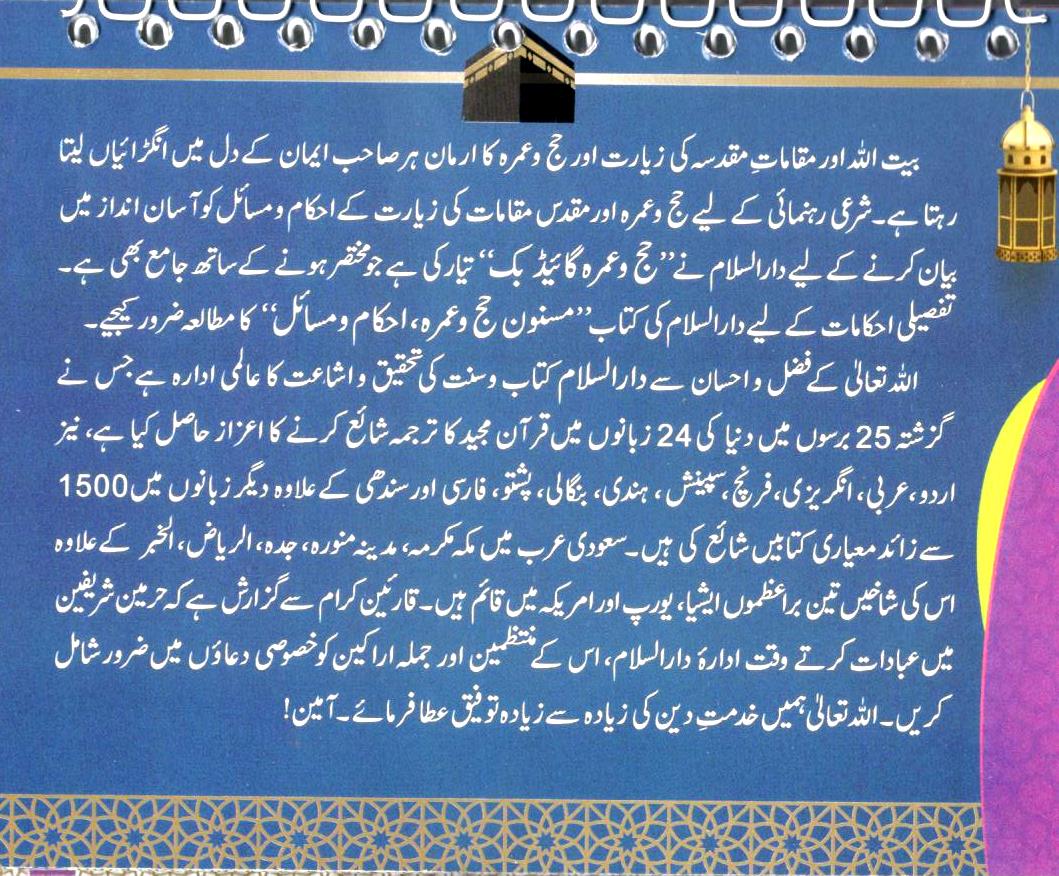 بیت اللہ اور مقاماتِ مقدسہ کی زیارت اور حج وعمرہ کا ارمان ہر صاحب ایمان کے دل میں انگڑائیاں لیتا
رہتا ہے۔ شرعی رہنمائی کے لیے حج وعمرہ اور مقدس مقامات کی زیارت کے احکام ومسائل کو آسان انداز میں
بیان کرنے کے لیے دارالسلام نے ’’حج وعمرہ گائیڈ بک‘‘ تیار کی ہے جو مختصر ہونے کے ساتھ جامع بھی ہے۔
تفصیلی احکامات کے لیے دارالسلام کی کتاب ’’مسنون حج وعمرہ، احکام ومسائل‘‘ کا مطالعہ ضرور کیجیے۔
اللہ تعالیٰ کے فضل واحسان سے دارالسلام کتاب وسنت کی تحقیق واشاعت کا عالمی ادارہ ہے جس نے
گزشتہ 25 برسوں میں دنیا کی 24 زبانوں میں قرآن مجید کا ترجمہ شائع کرنے کا اعزاز حاصل کیا ہے، نیز
اردو، عربی، انگریزی، فرنچ، سپینش، ہندی، بنگالی، پشتو، فارسی اور سندھی کے علاوہ دیگر زبانوں میں 1500
سے زائد معیاری کتابیں شائع کی ہیں۔ سعودی عرب میں مکہ مکرمہ، مدینہ منورہ، جدہ، الریاض، الخبر کے علاوہ
اس کی شاخیں تین براعظموں ایشیا، یورپ اور امریکہ میں قائم ہیں۔ قارئین کرام سے گزارش ہے کہ حرمین شریفین
میں عبادات کرتے وقت ادارۂ دارالسلام، اس کے منتظمین اور جملہ اراکین کو خصوصی دعاؤں میں ضرور شامل
کریں۔ اللہ تعالیٰ ہمیں خدمتِ دین کی زیادہ سے زیادہ توفیق عطا فرمائے۔ آمین!